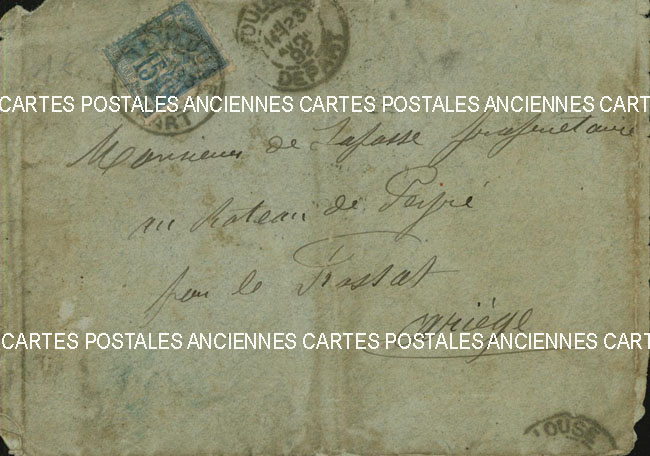 TOULOUSE
DEPART
15
CARTES POSTALES ANCIENNES CARTES POSTALES ANCIENNES CART
Monsieur de Lafasse propriétaire
au château de
par le Fossat
Ariége
CARTES POSTALES ANCIENNES CARTES POSTALES ANCIENNES CART
OUSE